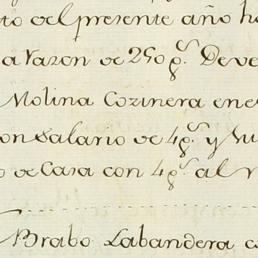 to del presente año ha
a razon de 250 p.s Deve
Molina Cozinera en e
on salario de 4 p.s y su
o de Casa con 4 p.s al
Brabo Labandera c